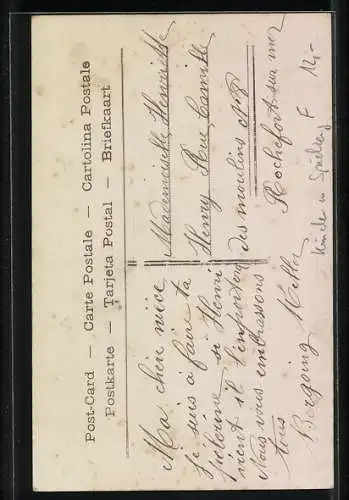 Post-Card — Carte Postale — Cartolina Postale
Postkarte — Tarjeta Postal — Briefkaart
Ma chère nièce
Je suis à faire ta
pelerine si Henri
vient il l'emportera
Nous vous embrassons
tous
Mademoiselle Henriette
Henry Rue Camille
des moulins
Rochefort sur mer
Kinder u Spielzeug F 12,-